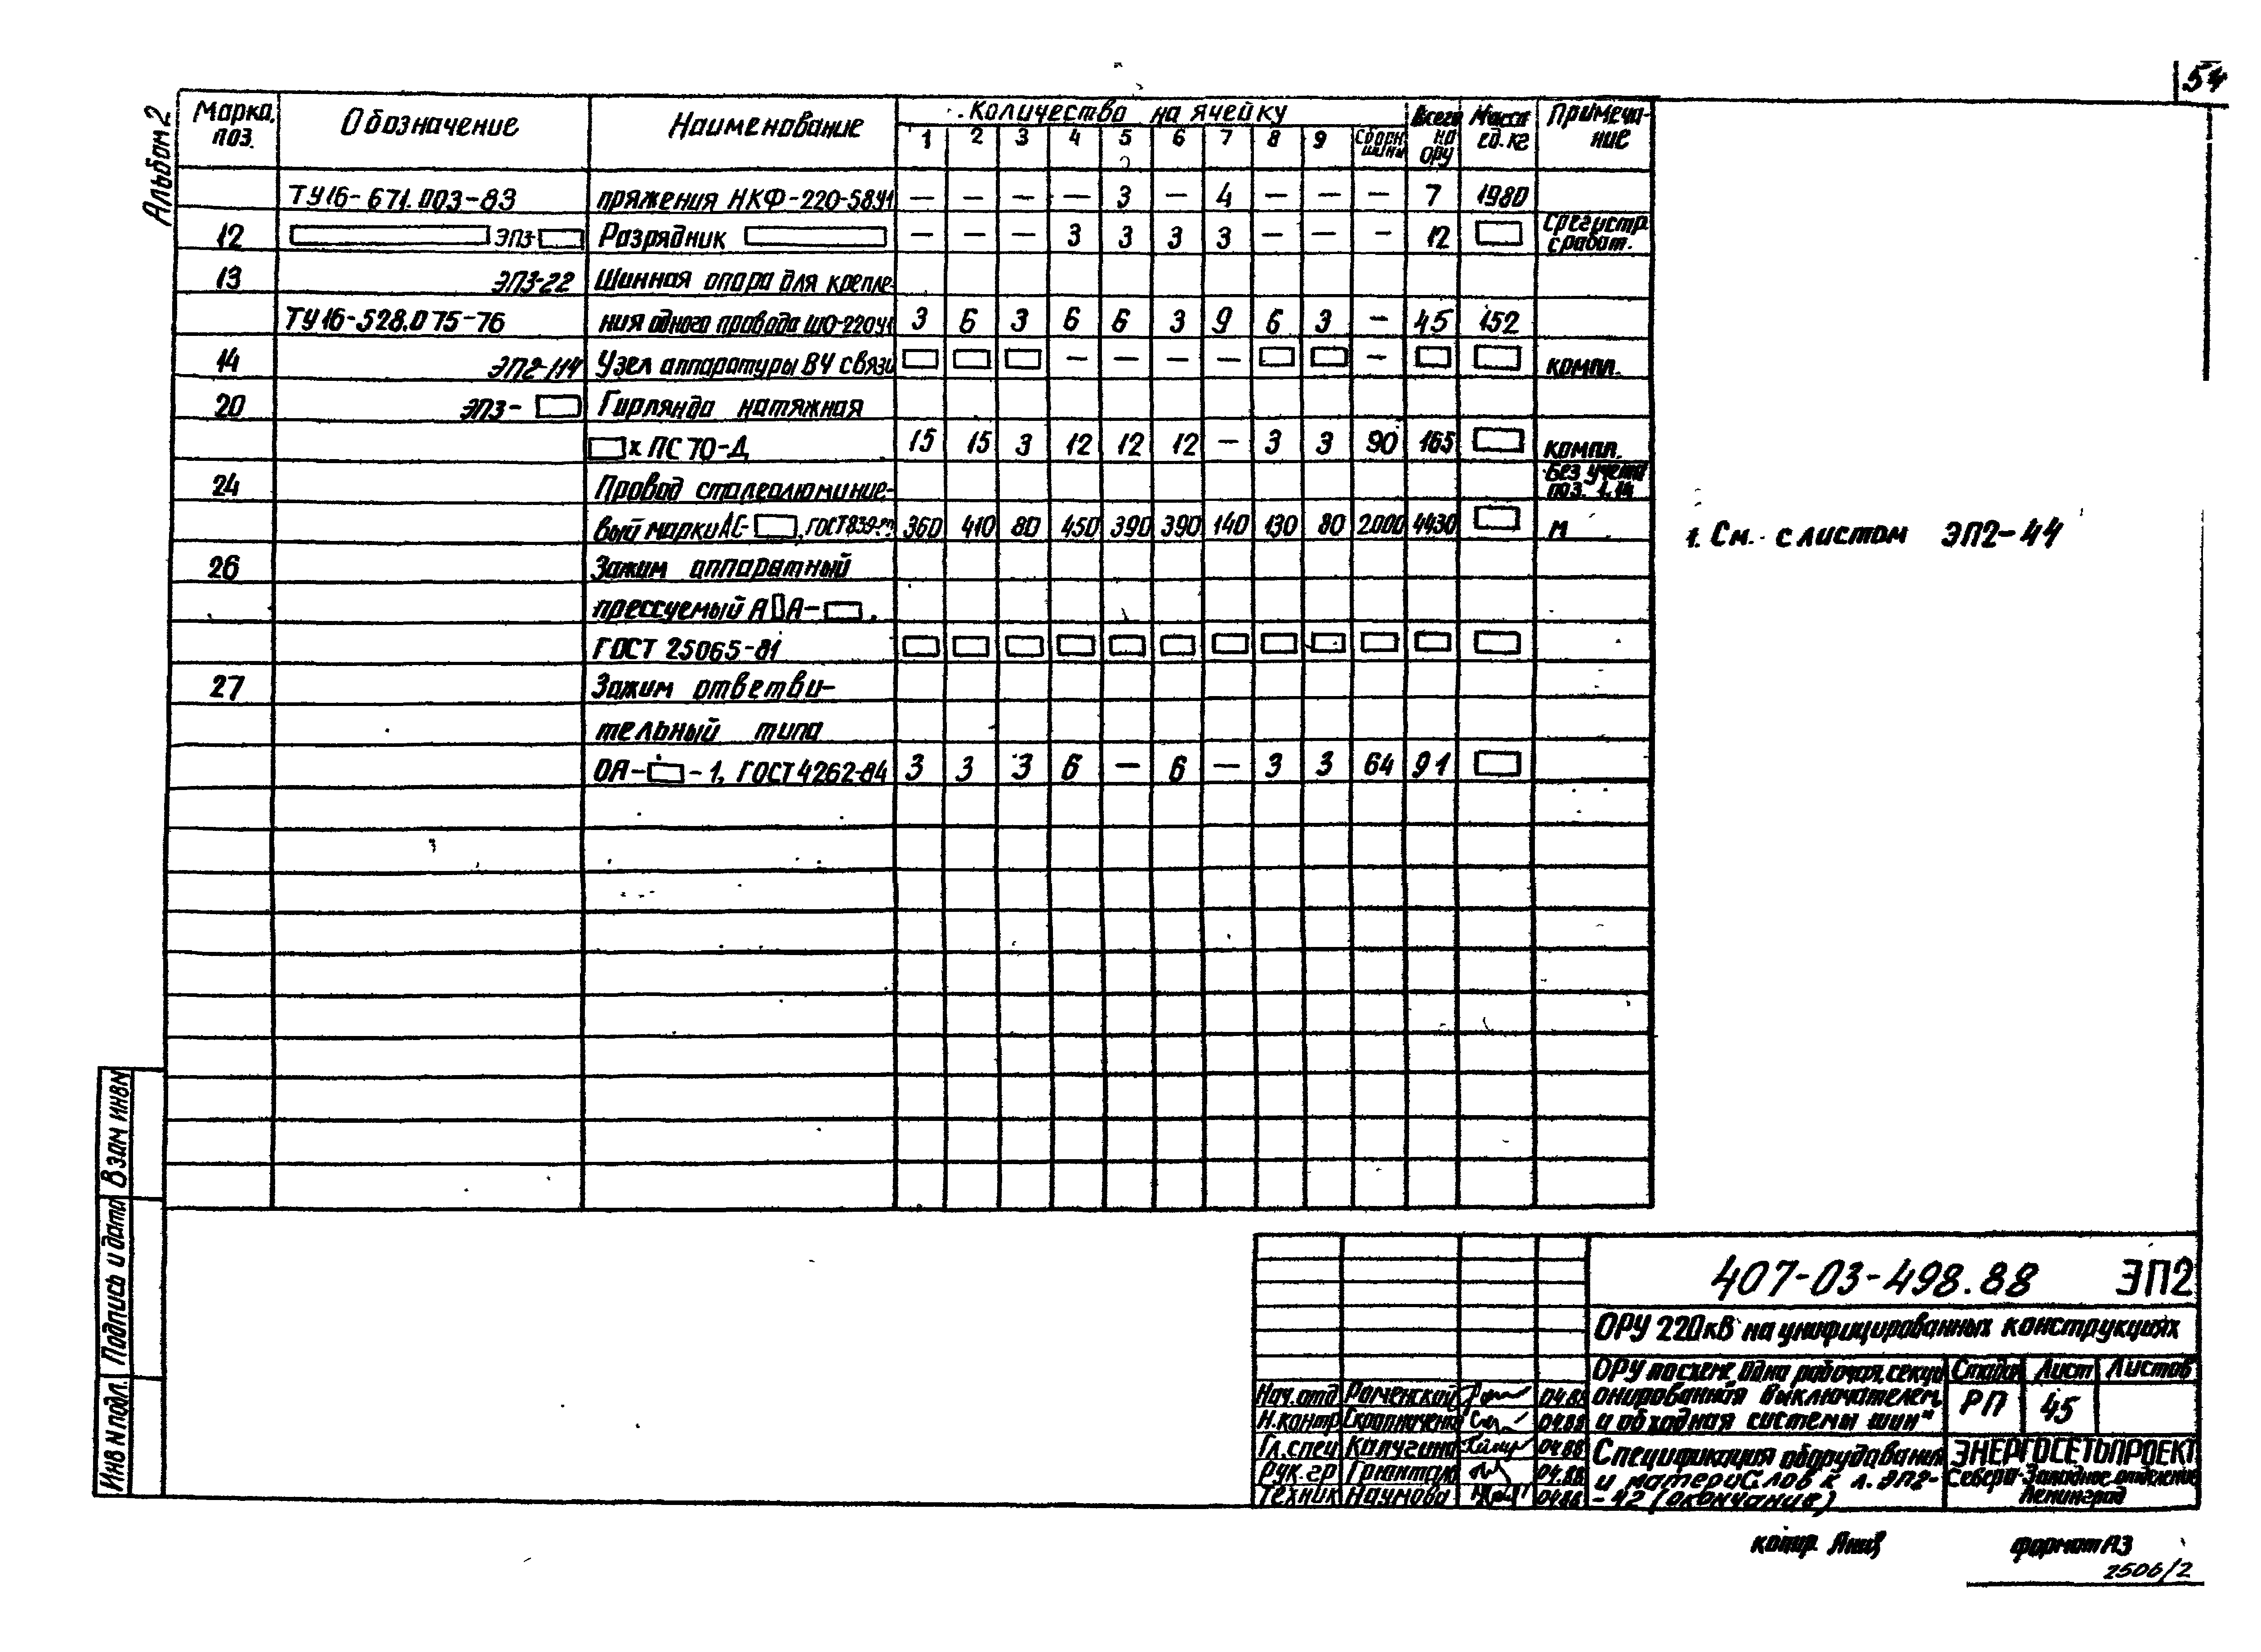 54
Альбом 2
Марка, поз. | Обозначение | Наименование | Количество на ячейку | Всего на ОРУ | Масса ед. кг | Примеча-ние
1 2 3 4 5 6 7 8 9 Сборн. шины
ТУ16-671.003-83 пряжения НКФ-220-58У1 — — — — 3 — 4 — — — 7 1980
12 ЭП3-□ Разрядник □ — — — 3 3 3 3 — — — 12 □ с регистр. сработ.
13 ЭП3-22 Шинная опора для крепле-
ТУ16-528.075-76 ния одного провода ШО-220У1 3 6 3 6 6 3 9 6 3 — 45 152
14 ЭП2-114 Узел аппаратуры ВЧ связи □ □ □ — — — — □ □ — □ □ компл.
20 ЭП3-□ Гирлянда натяжная
□хПС70-Д 15 15 3 12 12 12 — 3 3 90 165 □ компл.
24 Провод сталеалюминие- Без учета поз. 1,14
вый марки АС-□, ГОСТ 839- 360 410 80 450 390 390 140 130 80 2000 4430 □ м
26 Зажим аппаратный
прессуемый А□А-□,
ГОСТ 25065-81 □ □ □ □ □ □ □ □ □ □ □ □
27 Зажим ответви-
тельный типа
ОА-□-1, ГОСТ 4262-84 3 3 3 6 — 6 — 3 3 64 91 □
1. См. с листом ЭП2-44
Взам инв N
Подпись и дата
Инв N подл.
407-03-498.88 ЭП2
ОРУ 220кВ на унифицированных конструкциях
ОРУ по схеме „Одна рабочая, секци-
онированная выключателем,
и обходная системы шин"
Стадия Лист Листов
РП 45
Нач.отд Роменский 04.88
Н.контр 04.88
Гл.спец Калугина 04.88
Рук.гр 04.88
Техник Наумова 04.88
Спецификация оборудования
и материалов к л. ЭП2-
-42 (окончание)
ЭНЕРГОСЕТЬПРОЕКТ
Северо-Западное отделение
Ленинград
копир.
формат А3
2506/2